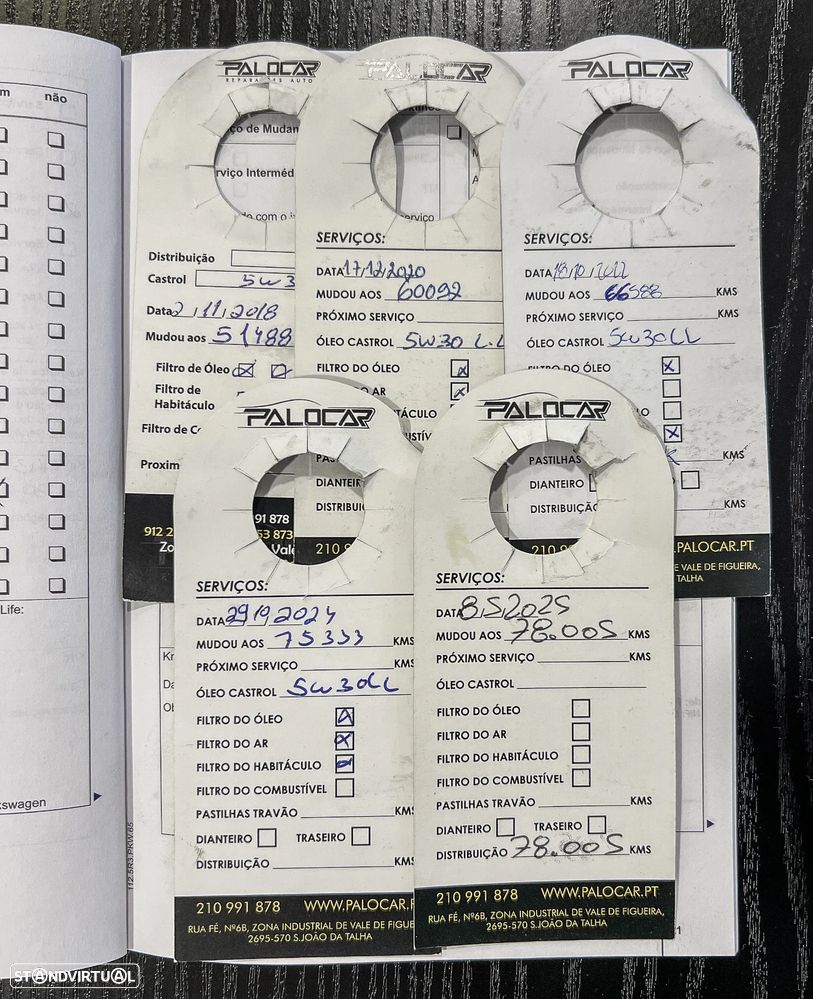 m não
Life:
kswagen
112.5R3.PKW.65
PALOCAR
REPARAÇÕES AUTO
ço de Mudan
rviço Interméd
Distribuição
Castrol 5W3
Data 2,11,2018
Mudou aos 51488
Filtro de Óleo
Filtro de
Habitáculo
Proxim
912 2
Zo
PALOCAR
erviço
SERVIÇOS:
DATA 17,12,2020
MUDOU AOS 60092
PRÓXIMO SERVIÇO
ÓLEO CASTROL 5W30 L.L
FILTRO DO ÓLEO
AR
PALOCAR
SERVIÇOS:
DATA 18,10,2022
MUDOU AOS 66588 KMS
PRÓXIMO SERVIÇO KMS
ÓLEO CASTROL 5W30LL
FILTRO DO ÓLEO
KMS
KMS
.PALOCAR.PT
E VALE DE FIGUEIRA,
TALHA
PALOCAR
DIANTEIR
DISTRIBUI
91 878
53 873
Vale
210 9
SERVIÇOS:
DATA 29,9,2024
MUDOU AOS 75333 KMS
PRÓXIMO SERVIÇO KMS
ÓLEO CASTROL 5W30LL
FILTRO DO ÓLEO
FILTRO DO AR
FILTRO DO HABITÁCULO
FILTRO DO COMBUSTÍVEL
PASTILHAS TRAVÃO KMS
DIANTEIRO TRASEIRO
DISTRIBUIÇÃO KMS
210 991 878 WWW.PALOCAR.P
RUA FÉ, Nº6B, ZONA INDUSTRIAL DE VALE DE FIGUE
2695-570 S.JOÃO DA TALHA
PALOCAR
PASTILHAS
DIANTEIRO
DISTRIBUIÇÃ
210 9
SERVIÇOS:
DATA 8,5,2025
MUDOU AOS 78.005 KMS
PRÓXIMO SERVIÇO KMS
ÓLEO CASTROL
FILTRO DO ÓLEO
FILTRO DO AR
FILTRO DO HABITÁCULO
FILTRO DO COMBUSTÍVEL
PASTILHAS TRAVÃO KMS
DIANTEIRO TRASEIRO
DISTRIBUIÇÃO 78.005 KMS
210 991 878 WWW.PALOCAR.PT
RUA FÉ, Nº6B, ZONA INDUSTRIAL DE VALE DE FIGUEIRA,
2695-570 S.JOÃO DA TALHA
STANDVIRTUAL